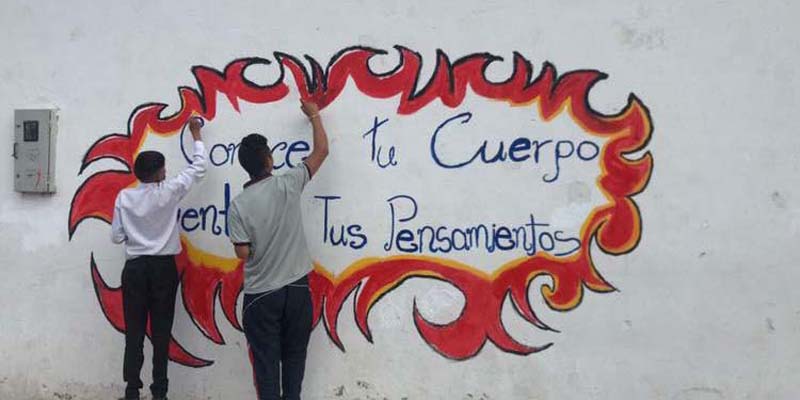 Conoce tu Cuerpo
Tus Pensamientos